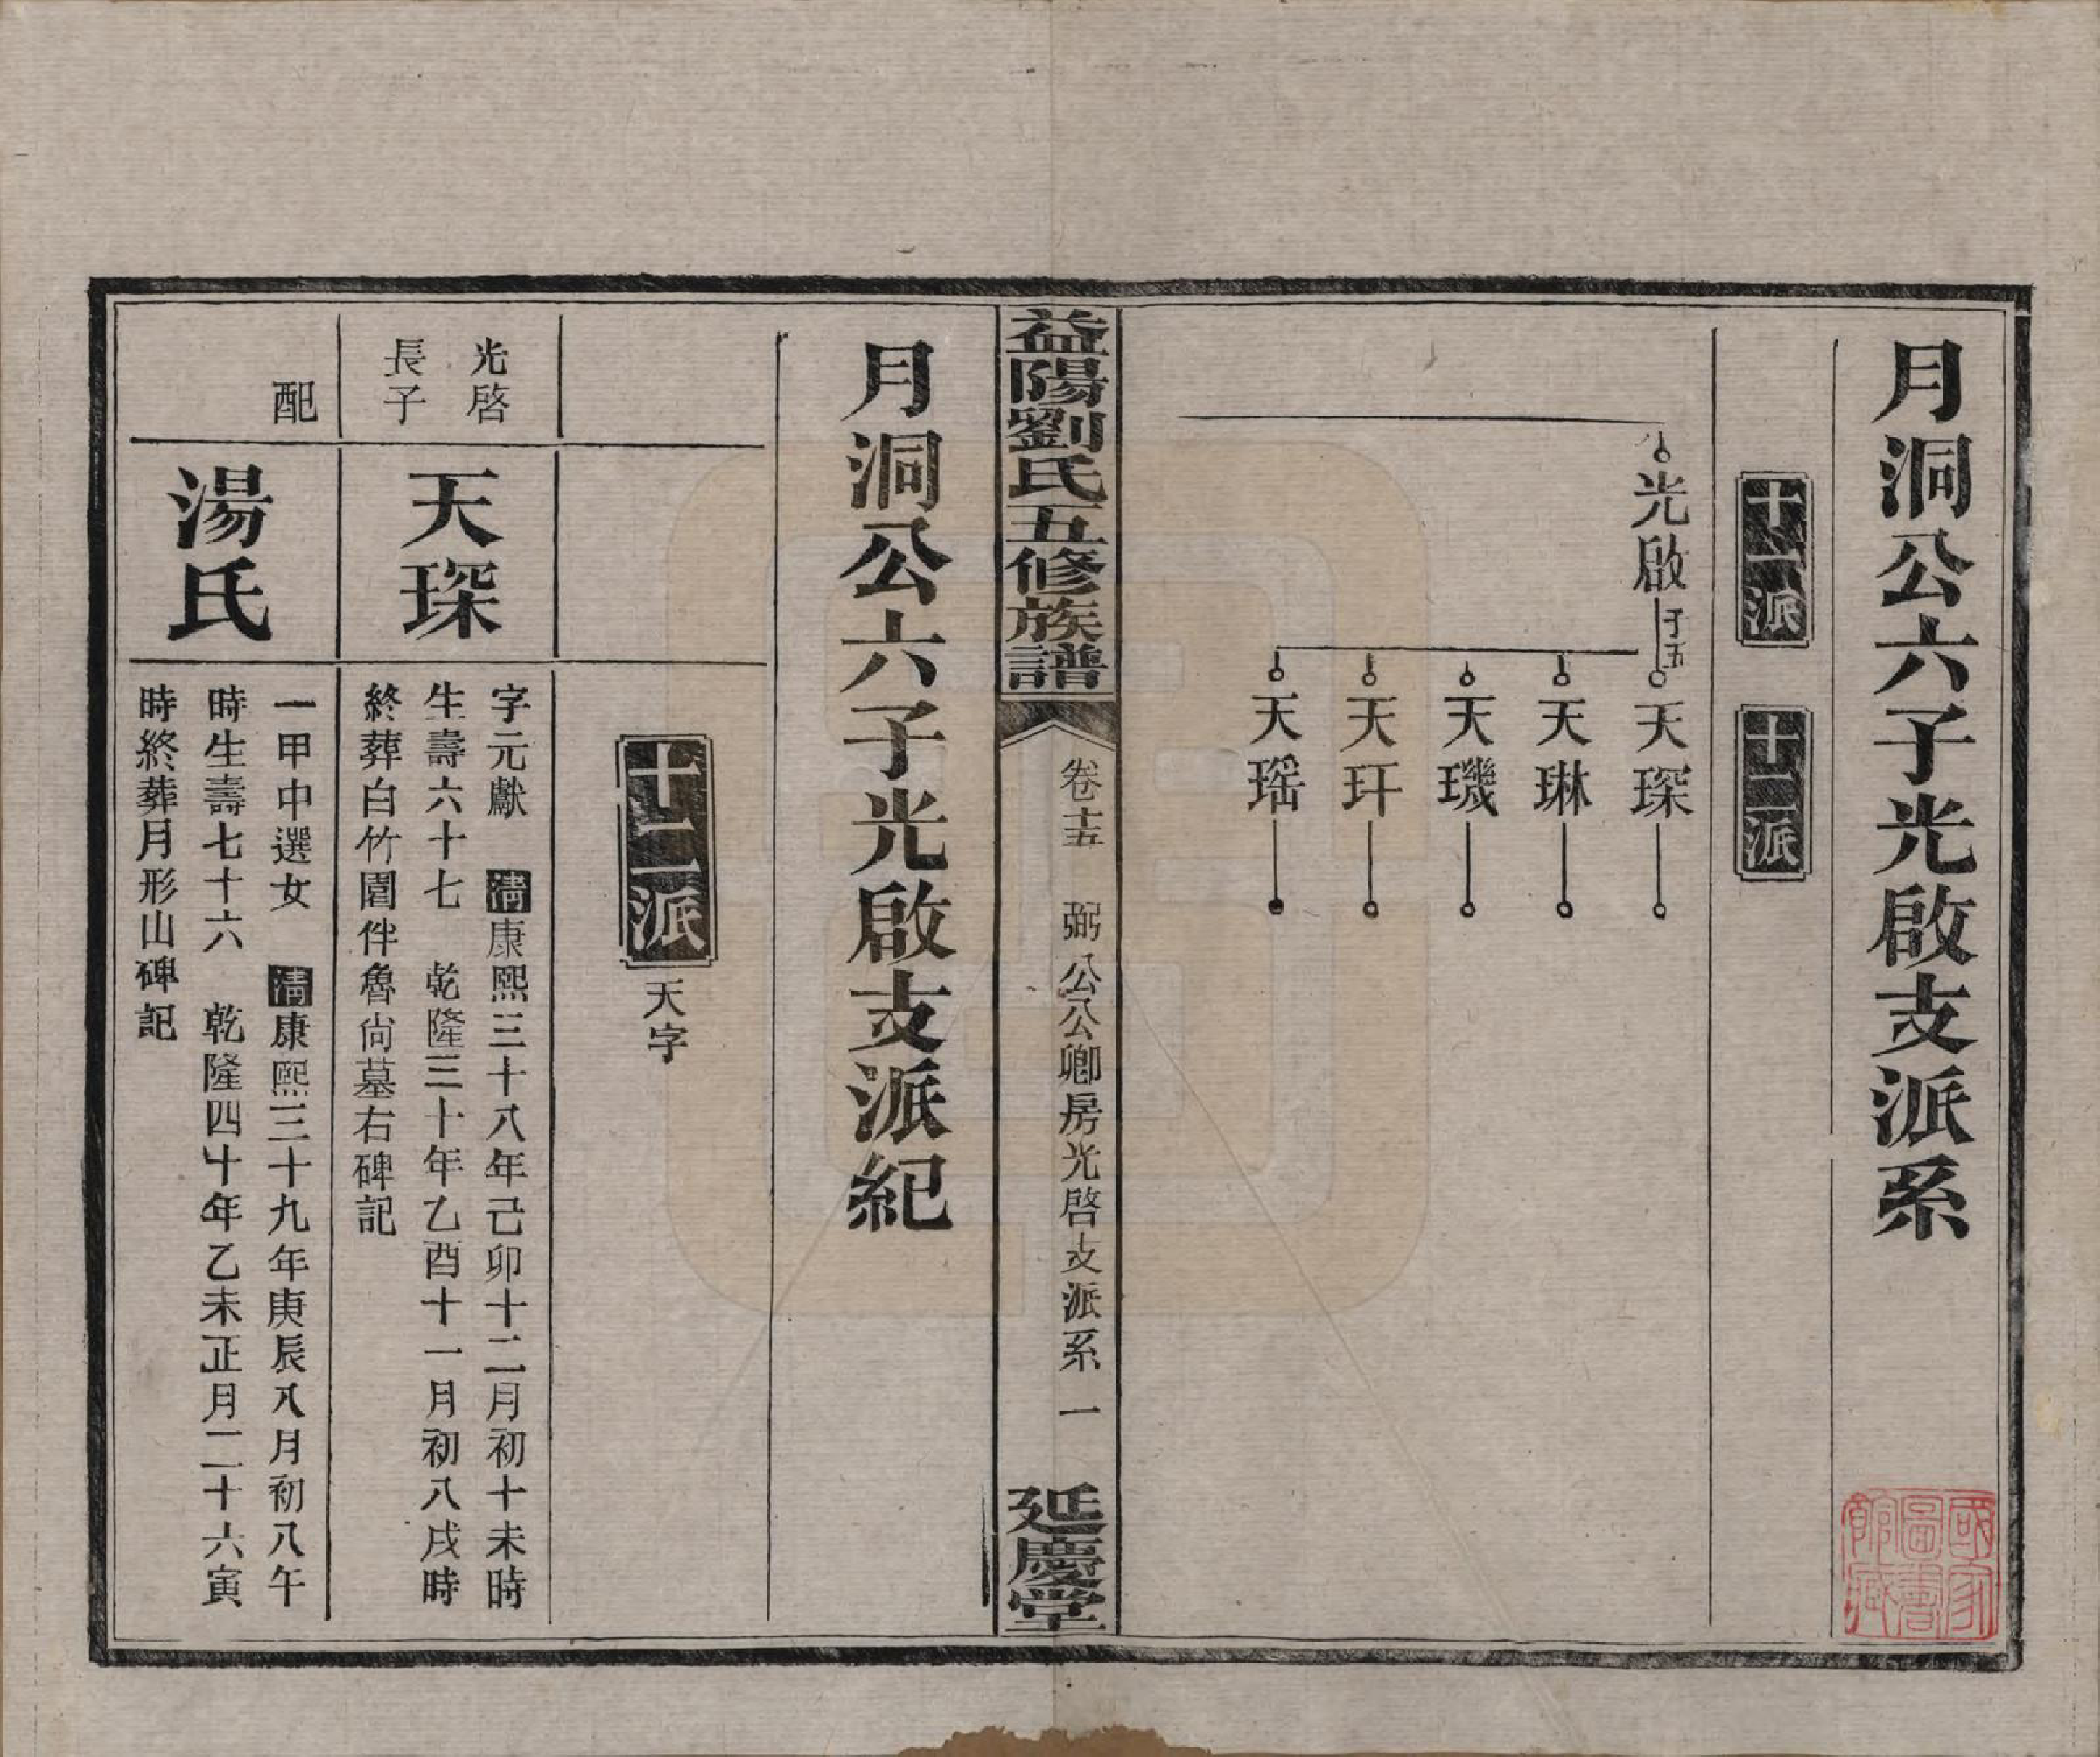 月洞公六子光啟支派系
十一派
十二派
光啟
子五
天琛
天琳
天璣
天玕
天瑶
國家圖書館藏
益陽劉氏五修族譜
卷十五 弼公公卿房光啓支派系 一
延慶堂
月洞公六子光啟支派紀
十二派
天字
光啓
長子
天琛
字元獻 清康熙三十八年己卯十二月初十未時
生壽六十七 乾隆三十年乙酉十一月初八戌時
終葬白竹園伴魯尚墓右碑記
配
湯氏
一甲中選女 清康熙三十九年庚辰八月初八午
時生壽七十六 乾隆四十年乙未正月二十六寅
時終葬月形山碑記